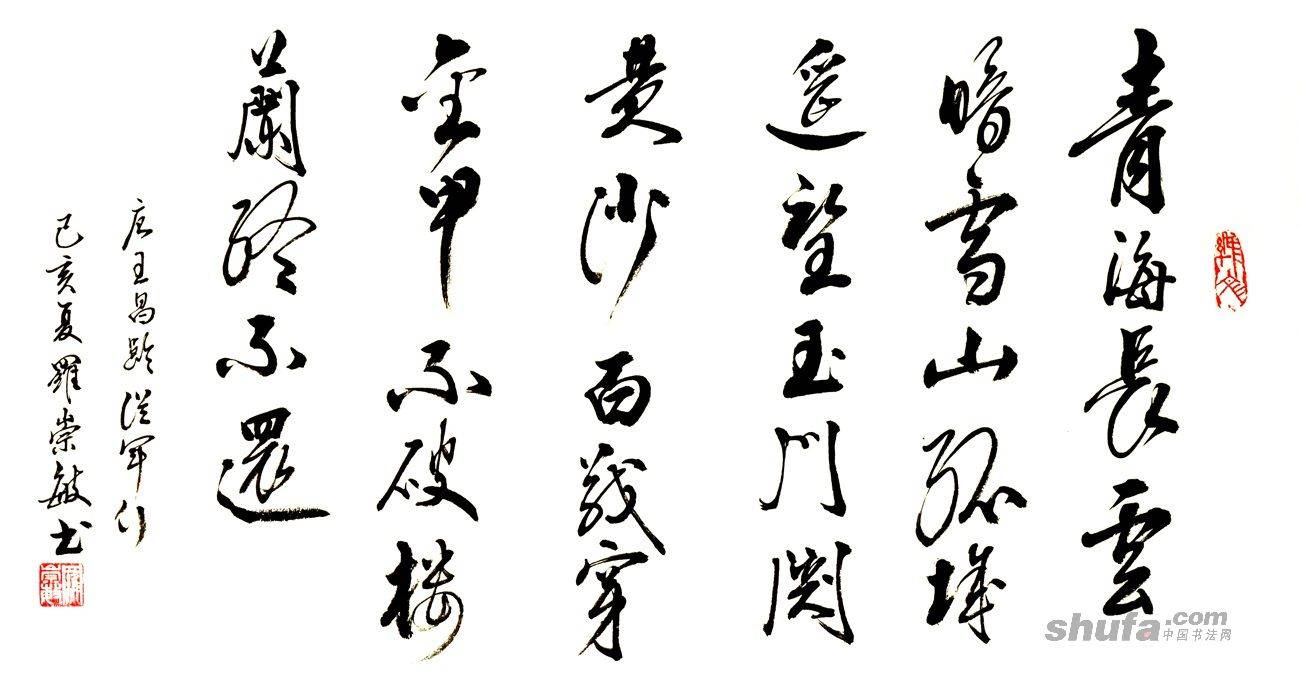 青海長雲
暗雪山孤城
遥望玉門関
黄沙百戰穿
金甲不破楼
蘭終不還
唐王昌齡從軍行
己亥夏羅崇敏书
shufa.com
中国书法网